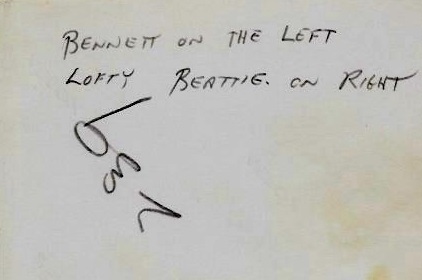 BENNETT ON THE LEFT
LOFTY BEATTIE. ON RIGHT